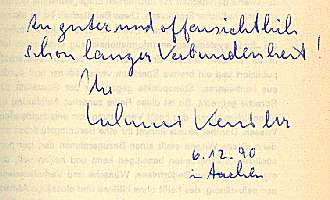 In guter und offensichtlich
schon langer Verbundenheit!
Ihr
6.12.90
in Aachen